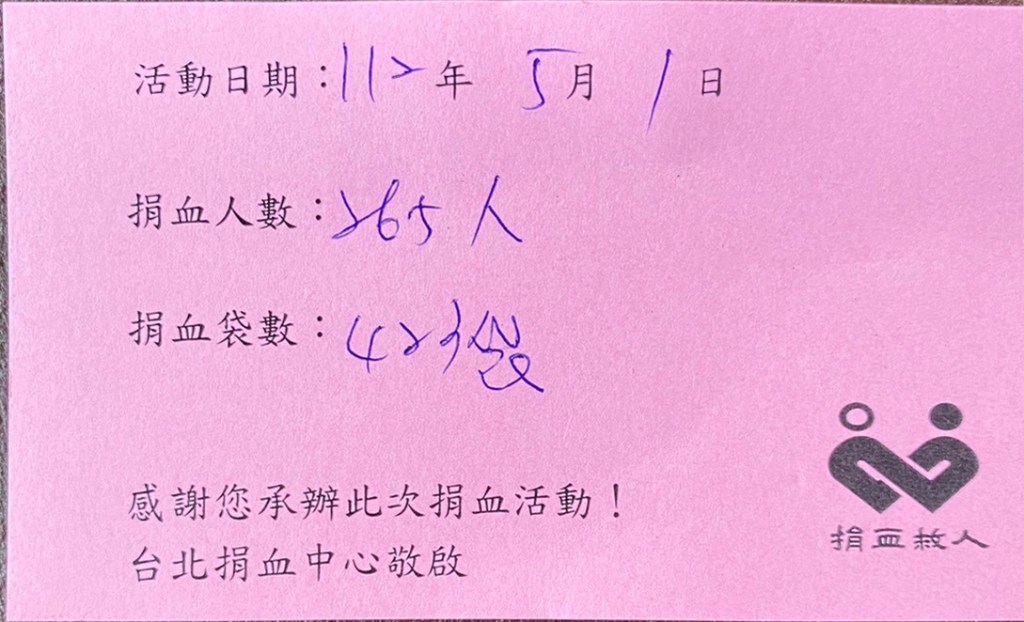 活動日期：112年 5月 1日
捐血人數：265人
捐血袋數：423袋
感謝您承辦此次捐血活動！
台北捐血中心敬啟
捐血救人